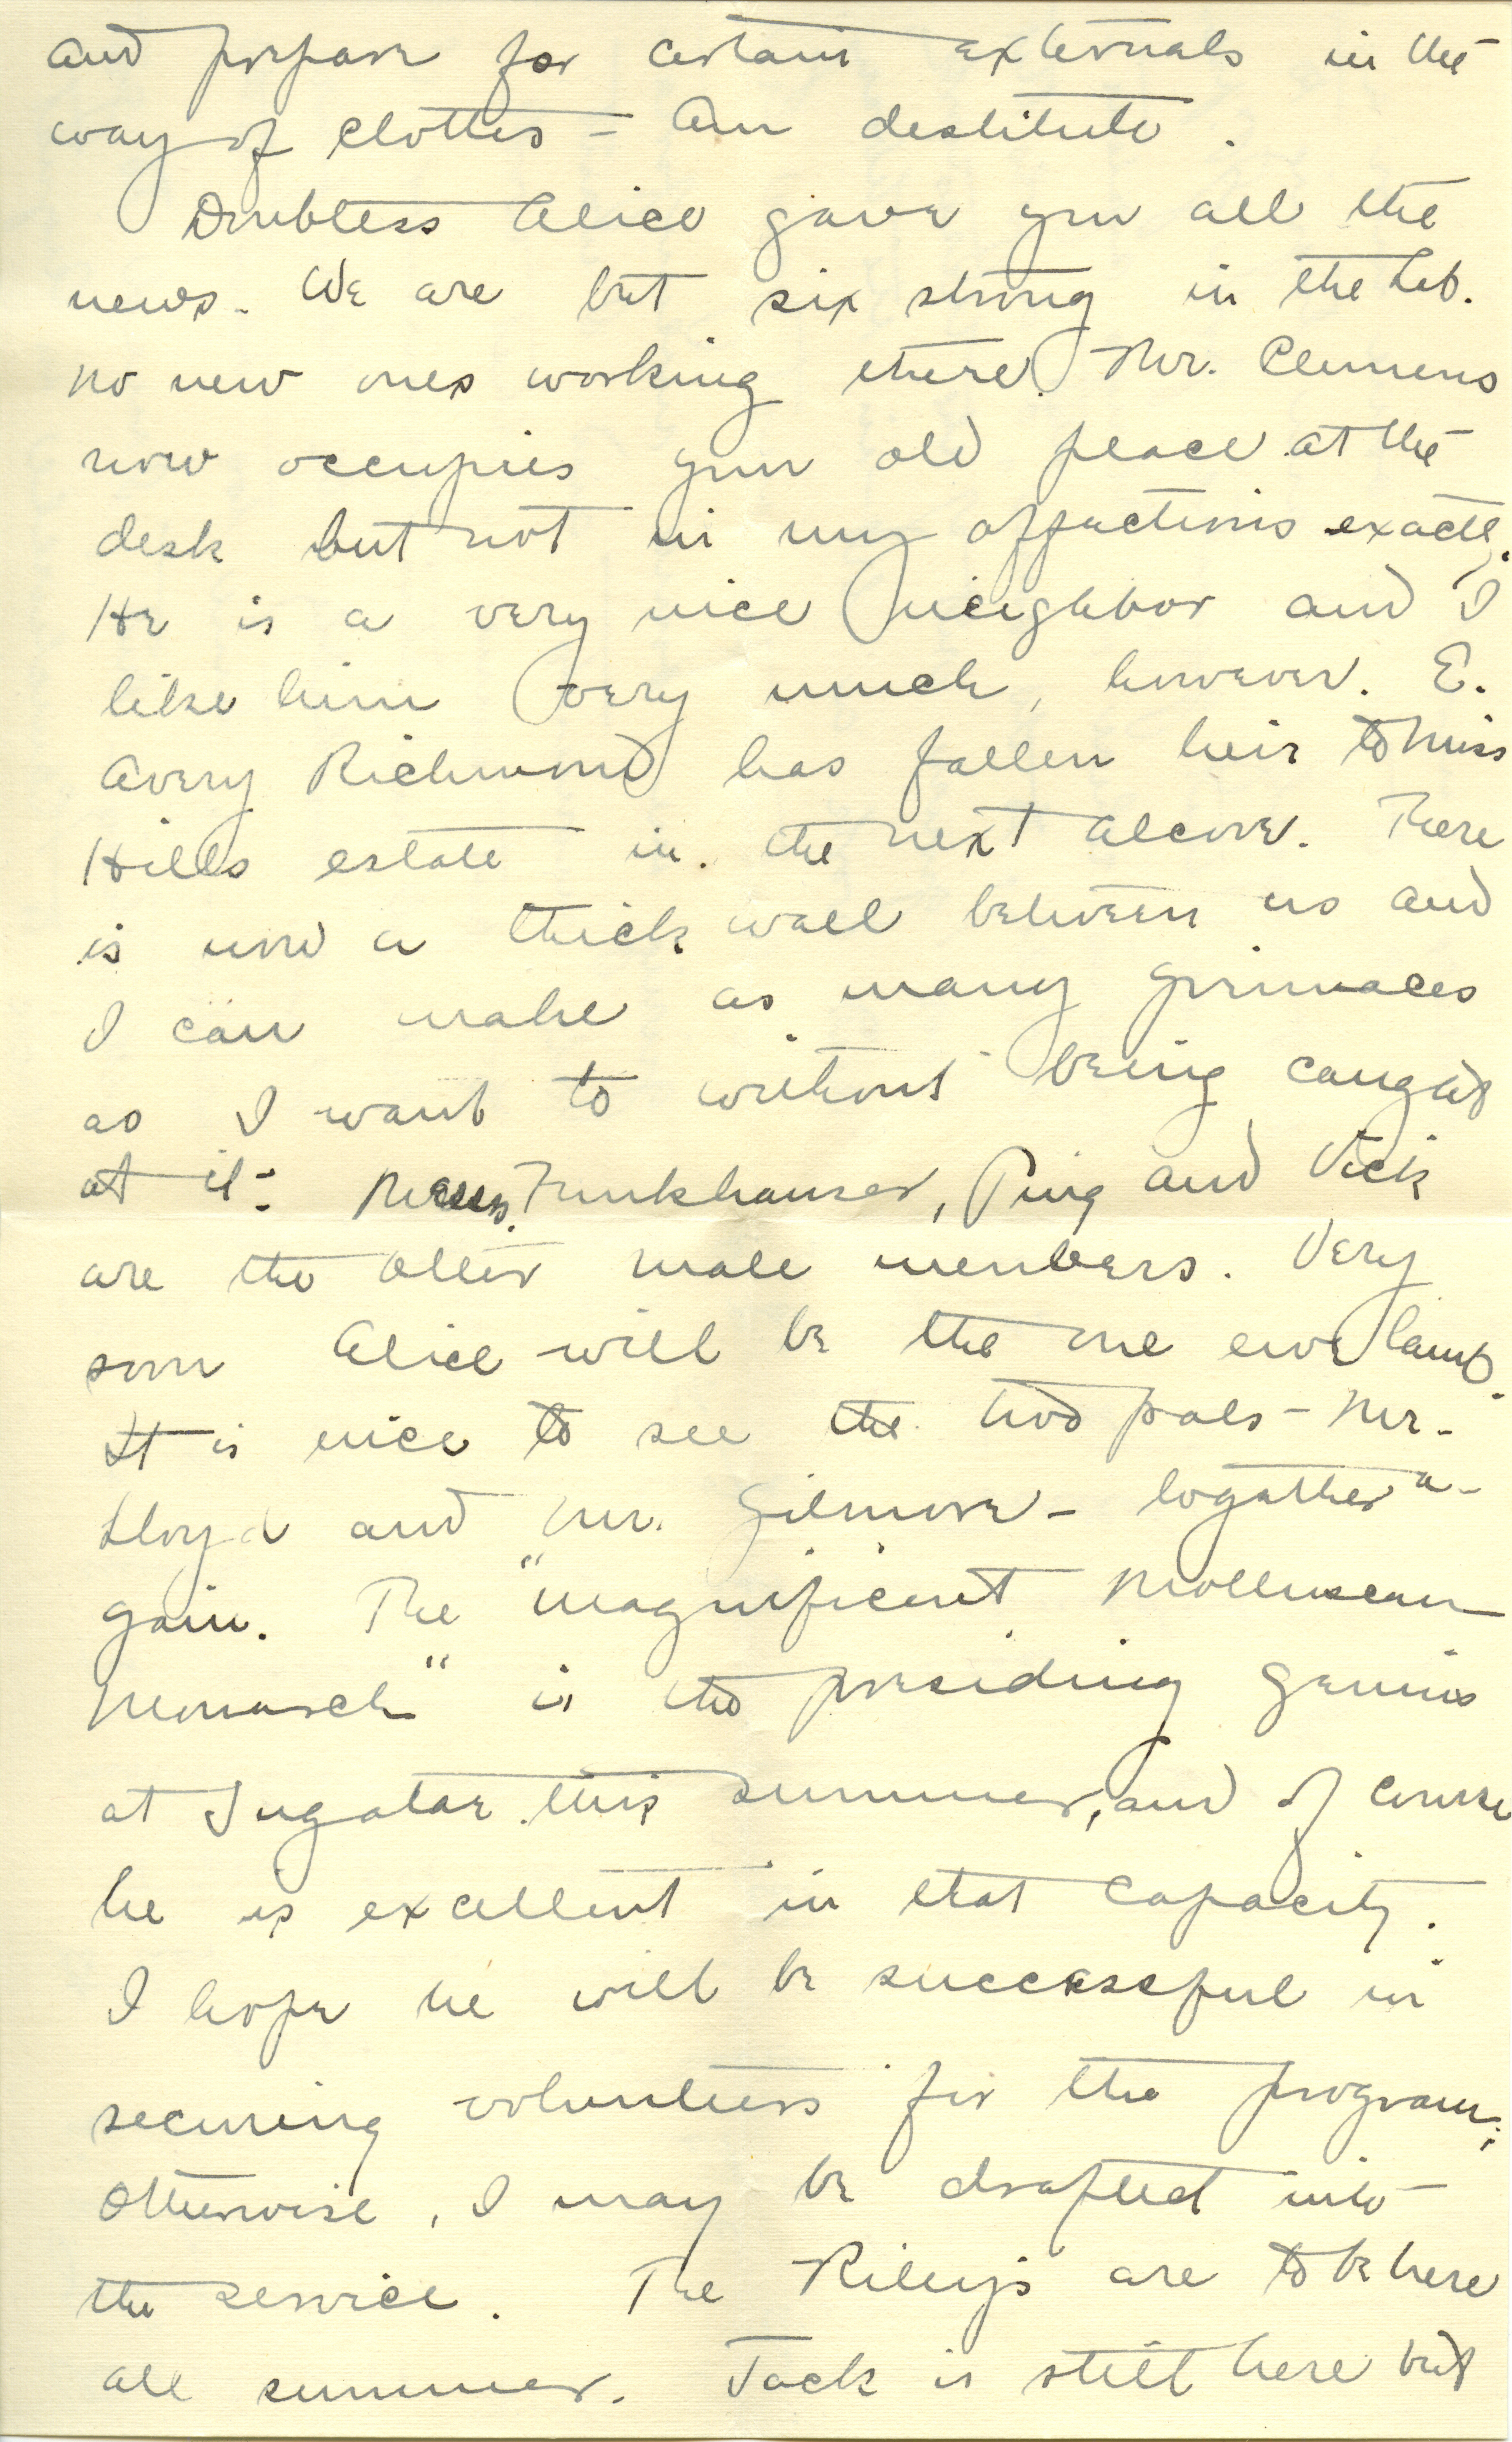 and prepare for certain externals in the
way of clothes – Am destitute.
Doubtless Alice gave you all the
news. We are but six strong in the Lab.
No new ones working there. Mr. Clemens
now occupies your old place at the
desk but not in my affections exactly.
He is a very nice neighbor and I
like him very much, however. E.
Avery Richmond has fallen heir to Miss
Hills estate in the next alcove. There
is now a thick wall between us and
I can make as many grimaces
as I want to without being caught
at it. Messrs. Funkhauser, Ping and Vick
are the other male members. Very
soon Alice will be the one ewe lamb.
It is nice to see the two pals – Mr.
Lloyd and Mr. Gilmore – together a-
gain. The "Magnificent Molluscan
Monarch" is the presiding genius
at Jugatae this summer, and of course
he is excellent in that capacity.
I hope he will be successful in
securing volunteers for the program;
Otherwise, I may be drafted into
the service. The Rileys are to be here
all summer. Jack is still here but